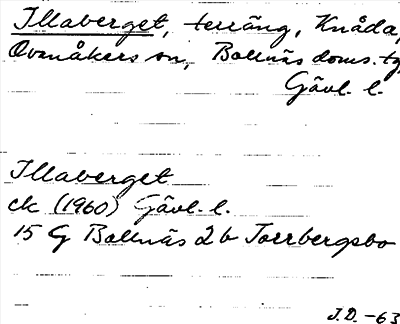 Illaberget, terräng, Knåda,
Ovanåkers sn, Bollnäs doms. tg,
Gävl. l.
Illaberget
ek (1960) Gävl. l.
15 G Bollnäs 2 b Torrbergsbo
J.D. -63